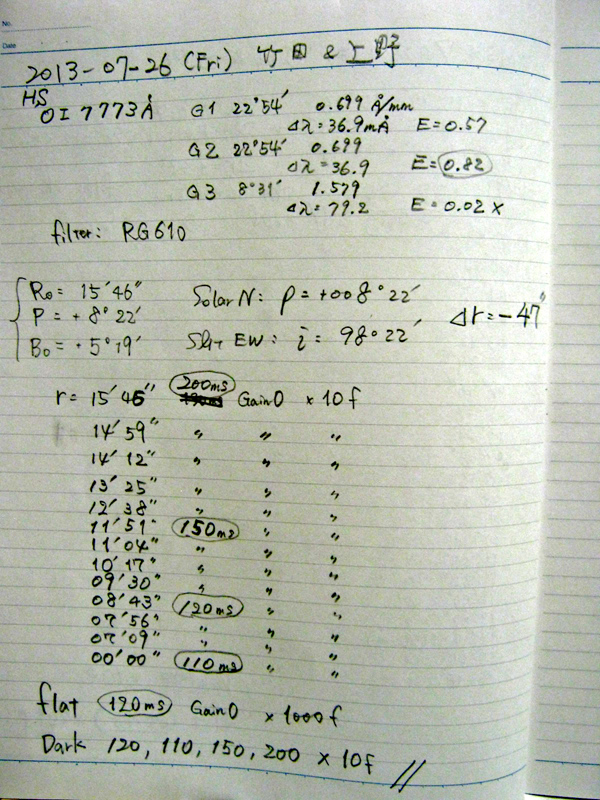 No.
Date
2013-07-26 (Fri) 竹田 & 上野
HS
OI 7773Å G1 22°54′ 0.699 Å/mm
Δλ=36.9mÅ E=0.57
G2 22°54′ 0.699
Δλ=36.9 E=0.82
G3 8°31′ 1.579
Δλ=79.2 E=0.02 ×
filter: RG610
R₀= 15′46″ Solar N: P=+008°22′
P=+8°22′ Δr=-47″
B₀=+5°19′ Slit EW: i=98°22′
200ms
r=15′46″ Gain0 ×10f
14′59″ 〃 〃 〃
14′12″ 〃 〃 〃
13′25″ 〃 〃 〃
12′38″ 〃 〃 〃
11′51″ 150ms 〃 〃
11′04″ 〃 〃 〃
10′17″ 〃 〃 〃
09′30″ 〃 〃 〃
08′43″ 120ms 〃 〃
07′56″ 〃 〃 〃
07′09″ 〃 〃 〃
00′00″ 110ms 〃 〃
flat 120ms Gain0 ×1000f
Dark 120, 110, 150, 200 ×10f //